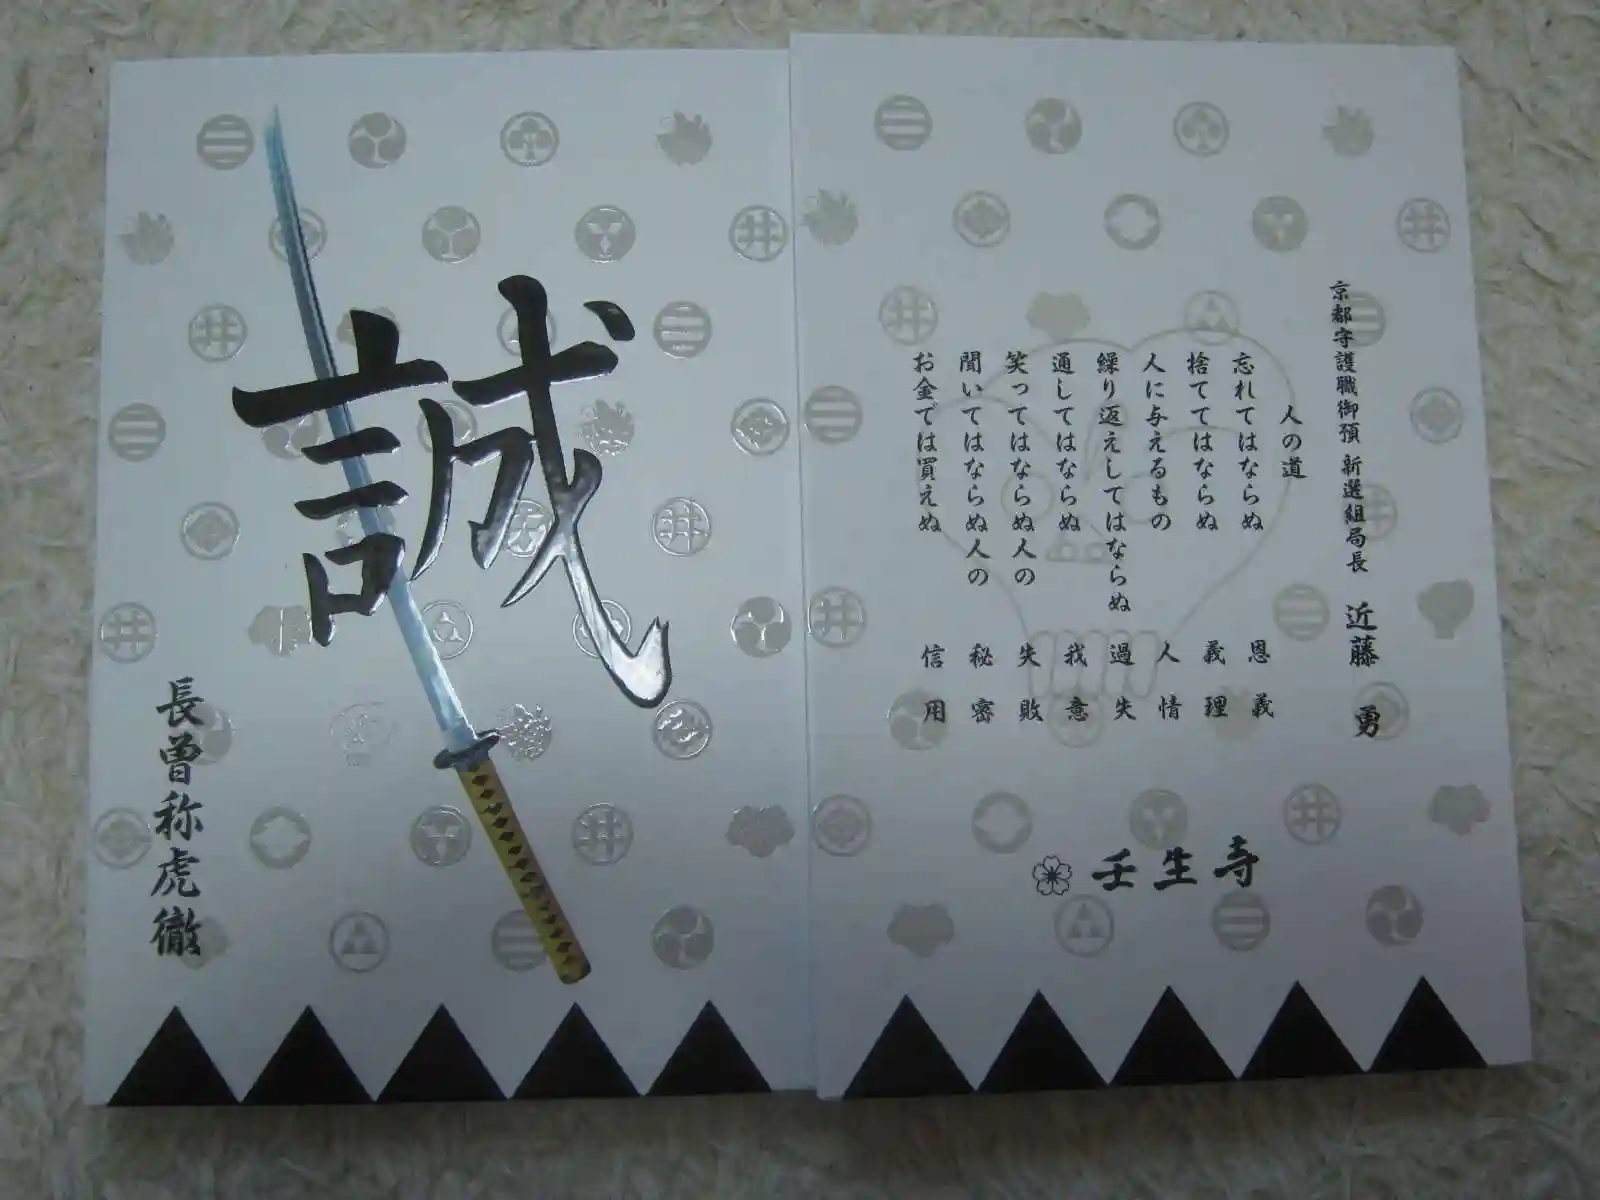 誠
長曽祢虎徹
京都守護職御預 新選組局長 近藤 勇
人の道
忘れてはならぬ 恩義
捨ててはならぬ 義理
人に与えるもの 人情
繰り返えしてはならぬ 過失
通してはならぬ 我意
笑ってはならぬ人の 失敗
聞いてはならぬ人の 秘密
お金では買えぬ 信用
壬生寺